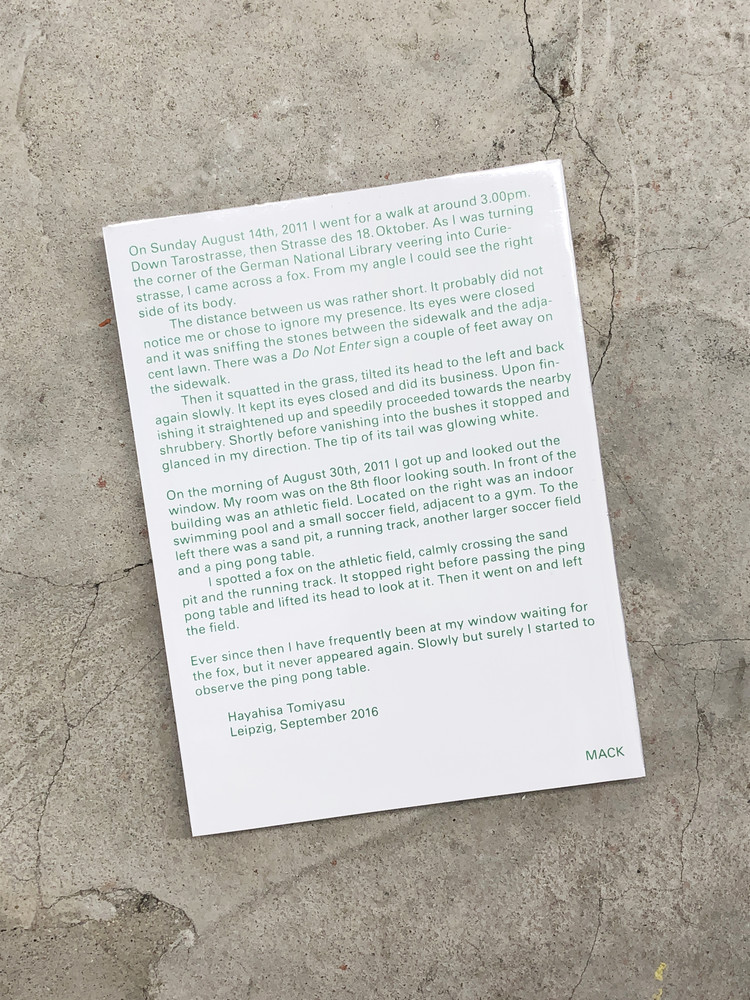 On Sunday August 14th, 2011 I went for a walk at around 3.00pm.
Down Tarostrasse, then Strasse des 18. Oktober. As I was turning
the corner of the German National Library veering into Curie-
strasse, I came across a fox. From my angle I could see the right
side of its body.
The distance between us was rather short. It probably did not
notice me or chose to ignore my presence. Its eyes were closed
and it was sniffing the stones between the sidewalk and the adja-
cent lawn. There was a Do Not Enter sign a couple of feet away on
the sidewalk.
Then it squatted in the grass, tilted its head to the left and back
again slowly. It kept its eyes closed and did its business. Upon fin-
ishing it straightened up and speedily proceeded towards the nearby
shrubbery. Shortly before vanishing into the bushes it stopped and
glanced in my direction. The tip of its tail was glowing white.
On the morning of August 30th, 2011 I got up and looked out the
window. My room was on the 8th floor looking south. In front of the
building was an athletic field. Located on the right was an indoor
swimming pool and a small soccer field, adjacent to a gym. To the
left there was a sand pit, a running track, another larger soccer field
and a ping pong table.
I spotted a fox on the athletic field, calmly crossing the sand
pit and the running track. It stopped right before passing the ping
pong table and lifted its head to look at it. Then it went on and left
the field.
Ever since then I have frequently been at my window waiting for
the fox, but it never appeared again. Slowly but surely I started to
observe the ping pong table.
Hayahisa Tomiyasu
Leipzig, September 2016
MACK